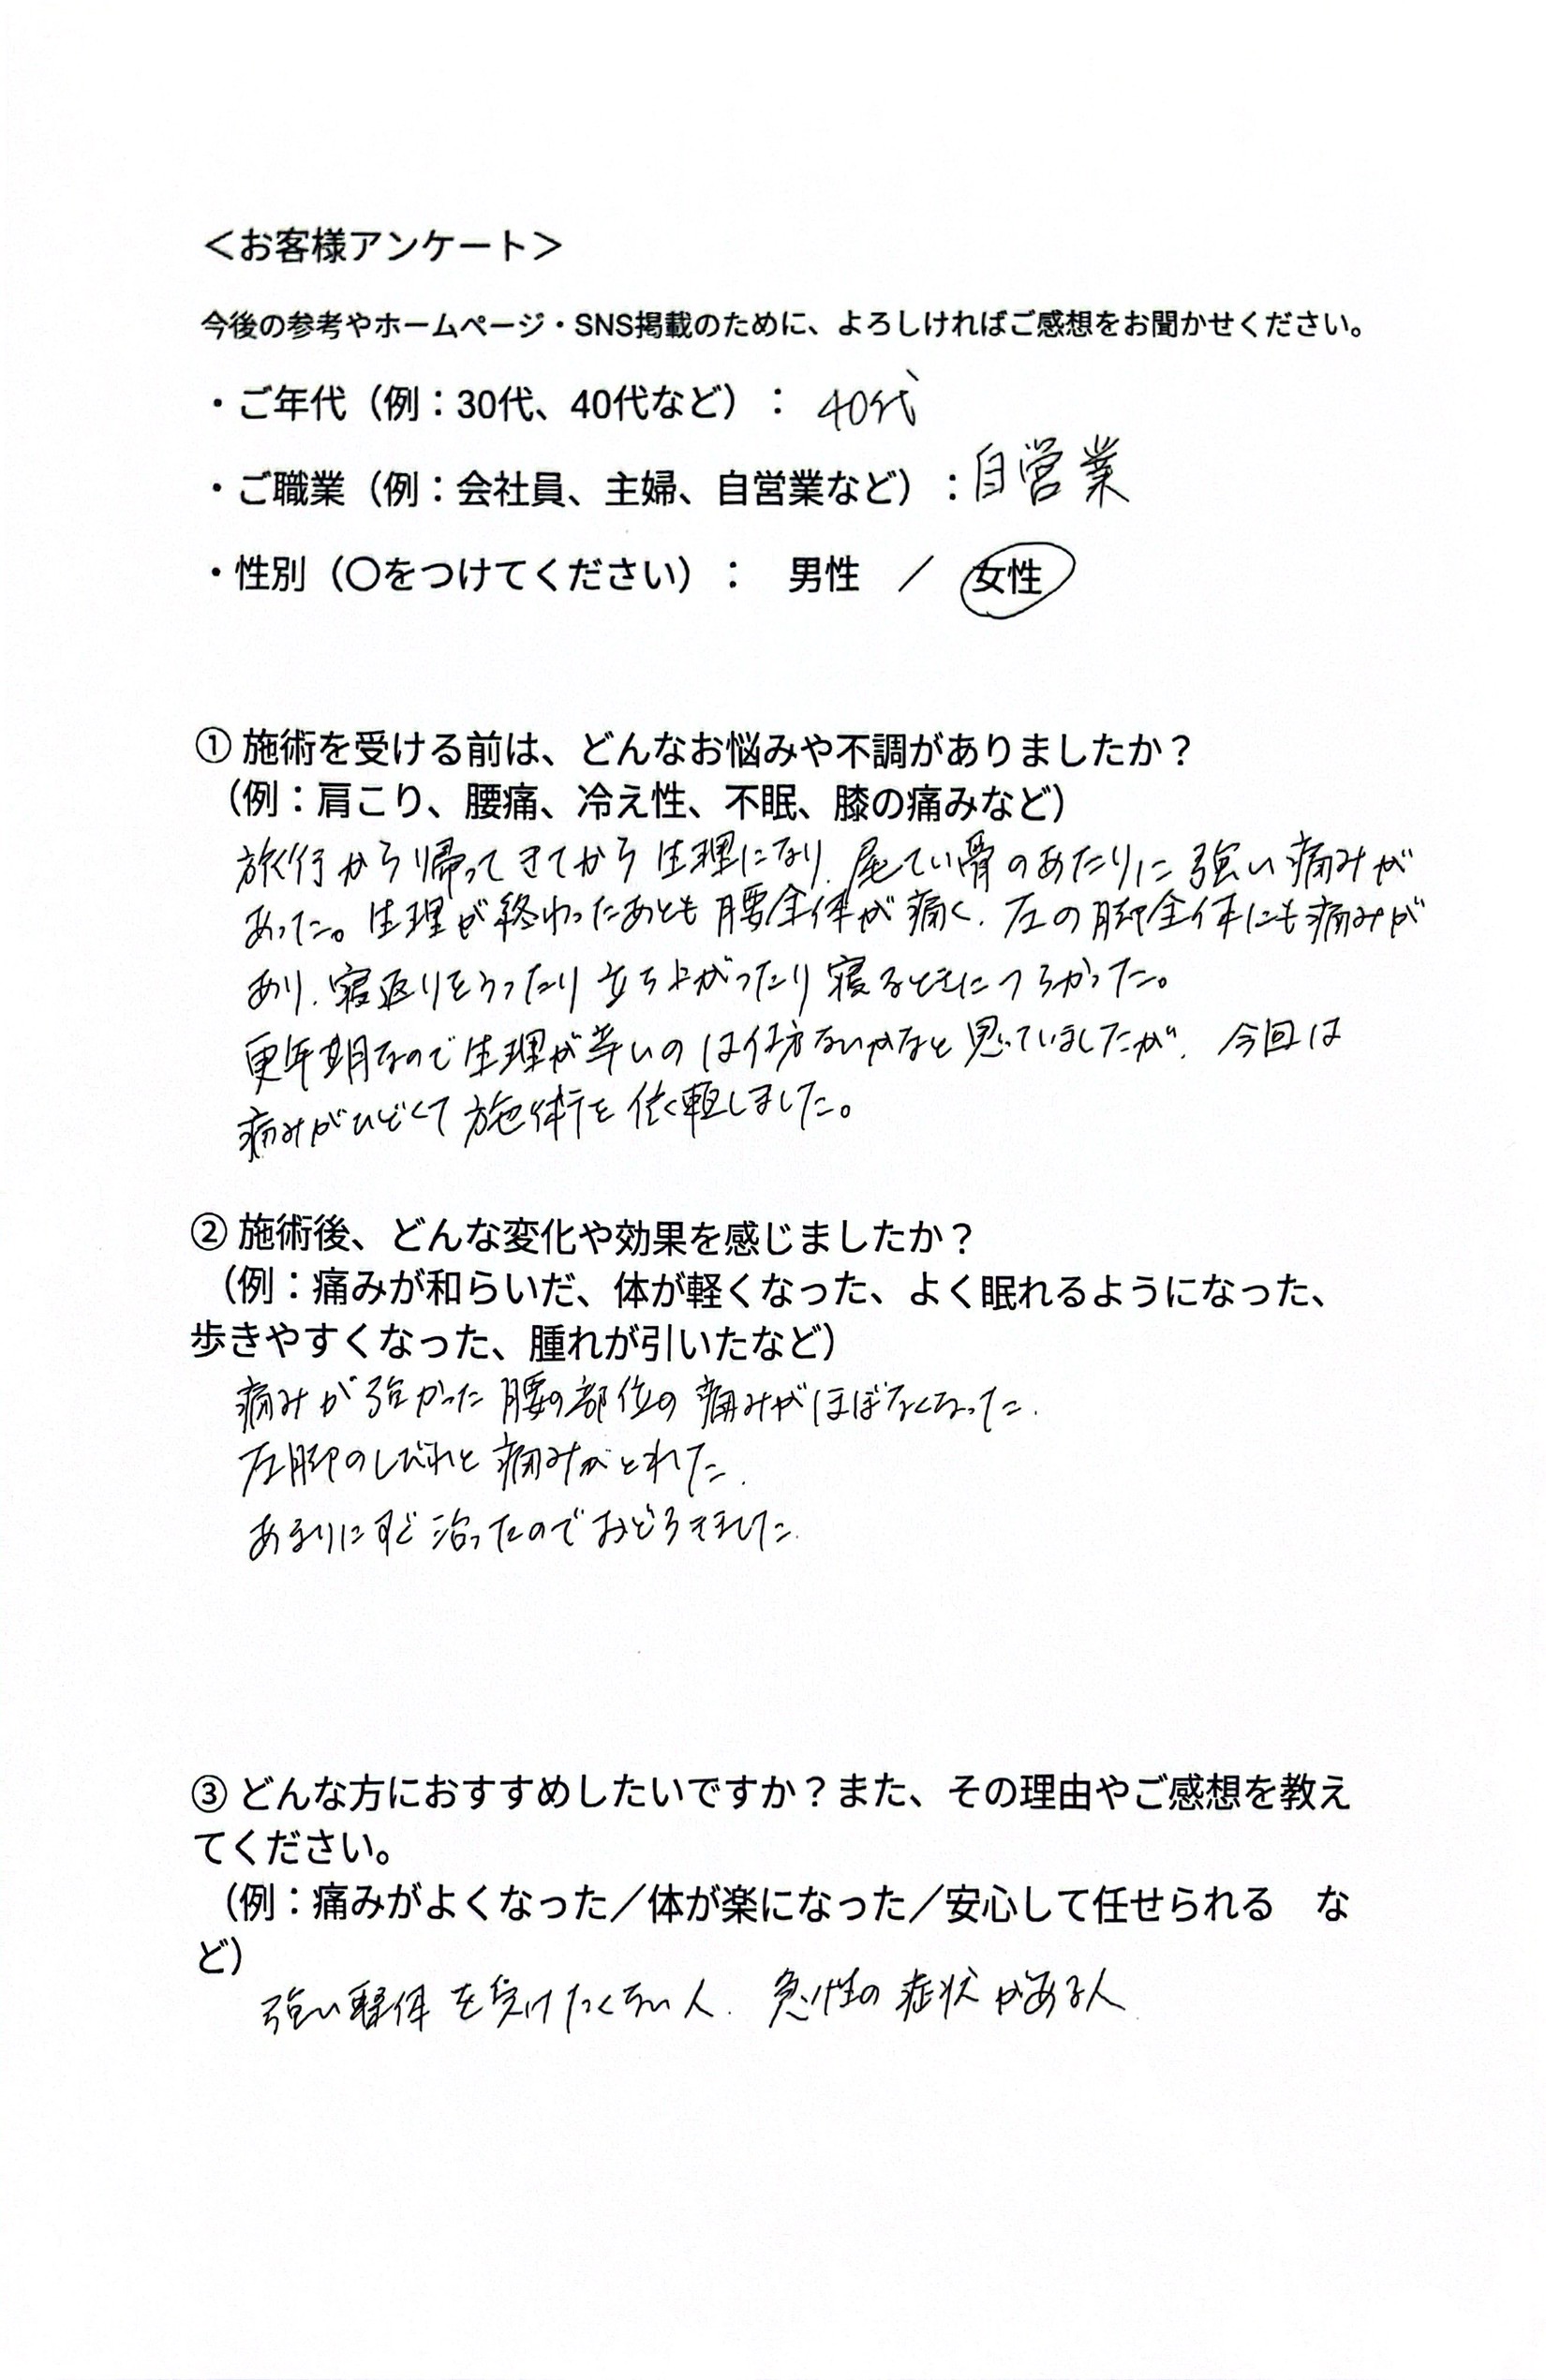 ＜お客様アンケート＞
今後の参考やホームページ・SNS掲載のために、よろしければご感想をお聞かせください。
・ご年代（例：30代、40代など）： 40代
・ご職業（例：会社員、主婦、自営業など）：自営業
・性別（〇をつけてください）： 男性 ／ 女性
① 施術を受ける前は、どんなお悩みや不調がありましたか？
（例：肩こり、腰痛、冷え性、不眠、膝の痛みなど）
旅行から帰ってきてから生理になり、尾てい骨のあたりに強い痛みが
あった。生理が終わったあとも腰全体が痛く、左の脚全体にも痛みが
あり、寝返りをうったり立ち上がったり寝るときにつらかった。
更年期なので生理が辛いのは仕方ないかなと思っていましたが、今回は
痛みがひどくて施術を依頼しました。
② 施術後、どんな変化や効果を感じましたか？
（例：痛みが和らいだ、体が軽くなった、よく眠れるようになった、
歩きやすくなった、腫れが引いたなど）
痛みが強かった腰の部位の痛みがほぼなくなった.
左脚のしびれと痛みがとれた.
あまりにすぐ治ったのでおどろきました.
③ どんな方におすすめしたいですか？また、その理由やご感想を教え
てください。
（例：痛みがよくなった／体が楽になった／安心して任せられる な
ど）
強い整体を受けたくない人. 急性の症状がある人